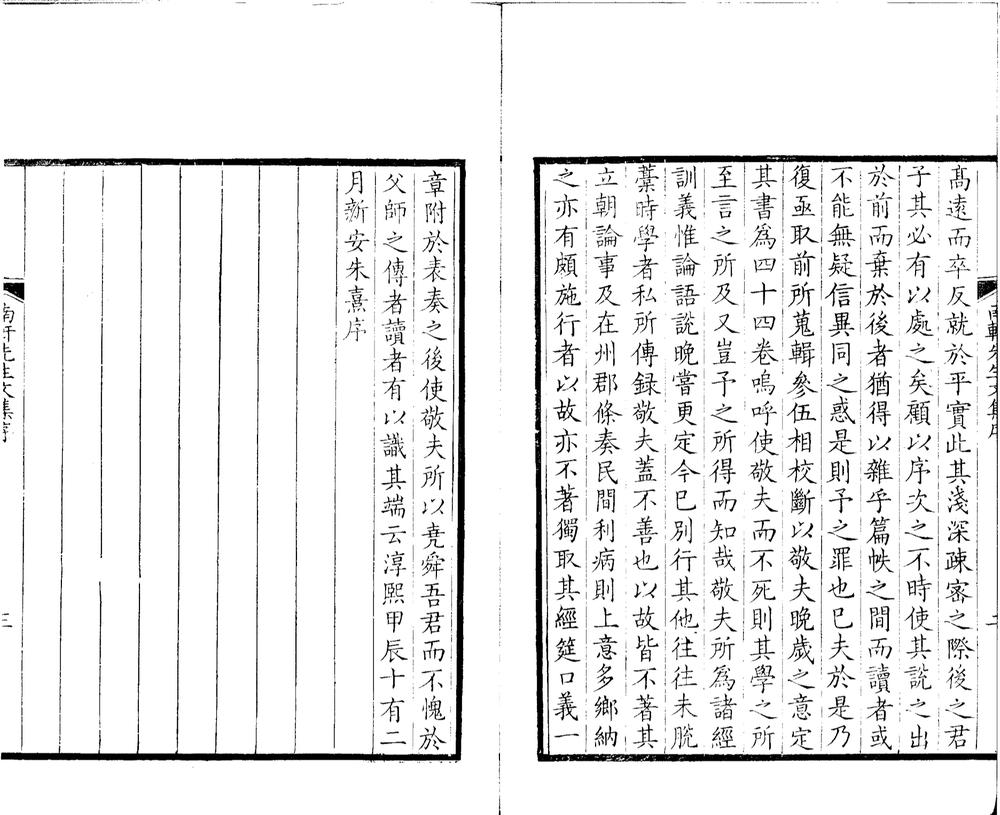 髙遠而卒反就於平實此其淺深疎宻之際後之君
子其必有以處之矣顧以序次之不時使其說之出
於前而棄於後者猶得以雜乎篇帙之間而讀者或
不能無疑信異同之惑是則予之罪也已夫於是乃
復亟取前所蒐輯參伍相校斷以敬夫晚歲之意定
其書爲四十四卷嗚呼使敬夫而不死則其學之所
至言之所及又豈予之所得而知哉敬夫所爲諸經
訓義惟論語說晚嘗更定今已别行其他往往未脫
藁時學者私所傳録敬夫蓋不善也以故皆不著其
立朝論事及在州郡條奏民間利病則上意多鄉納
之亦有頗施行者以故亦不著獨取其經筵口義一
章附於表奏之後使敬夫所以堯舜吾君而不愧於
父師之傳者讀者有以識其端云淳熙甲辰十有二
月新安朱熹序
南軒先生文集序
三